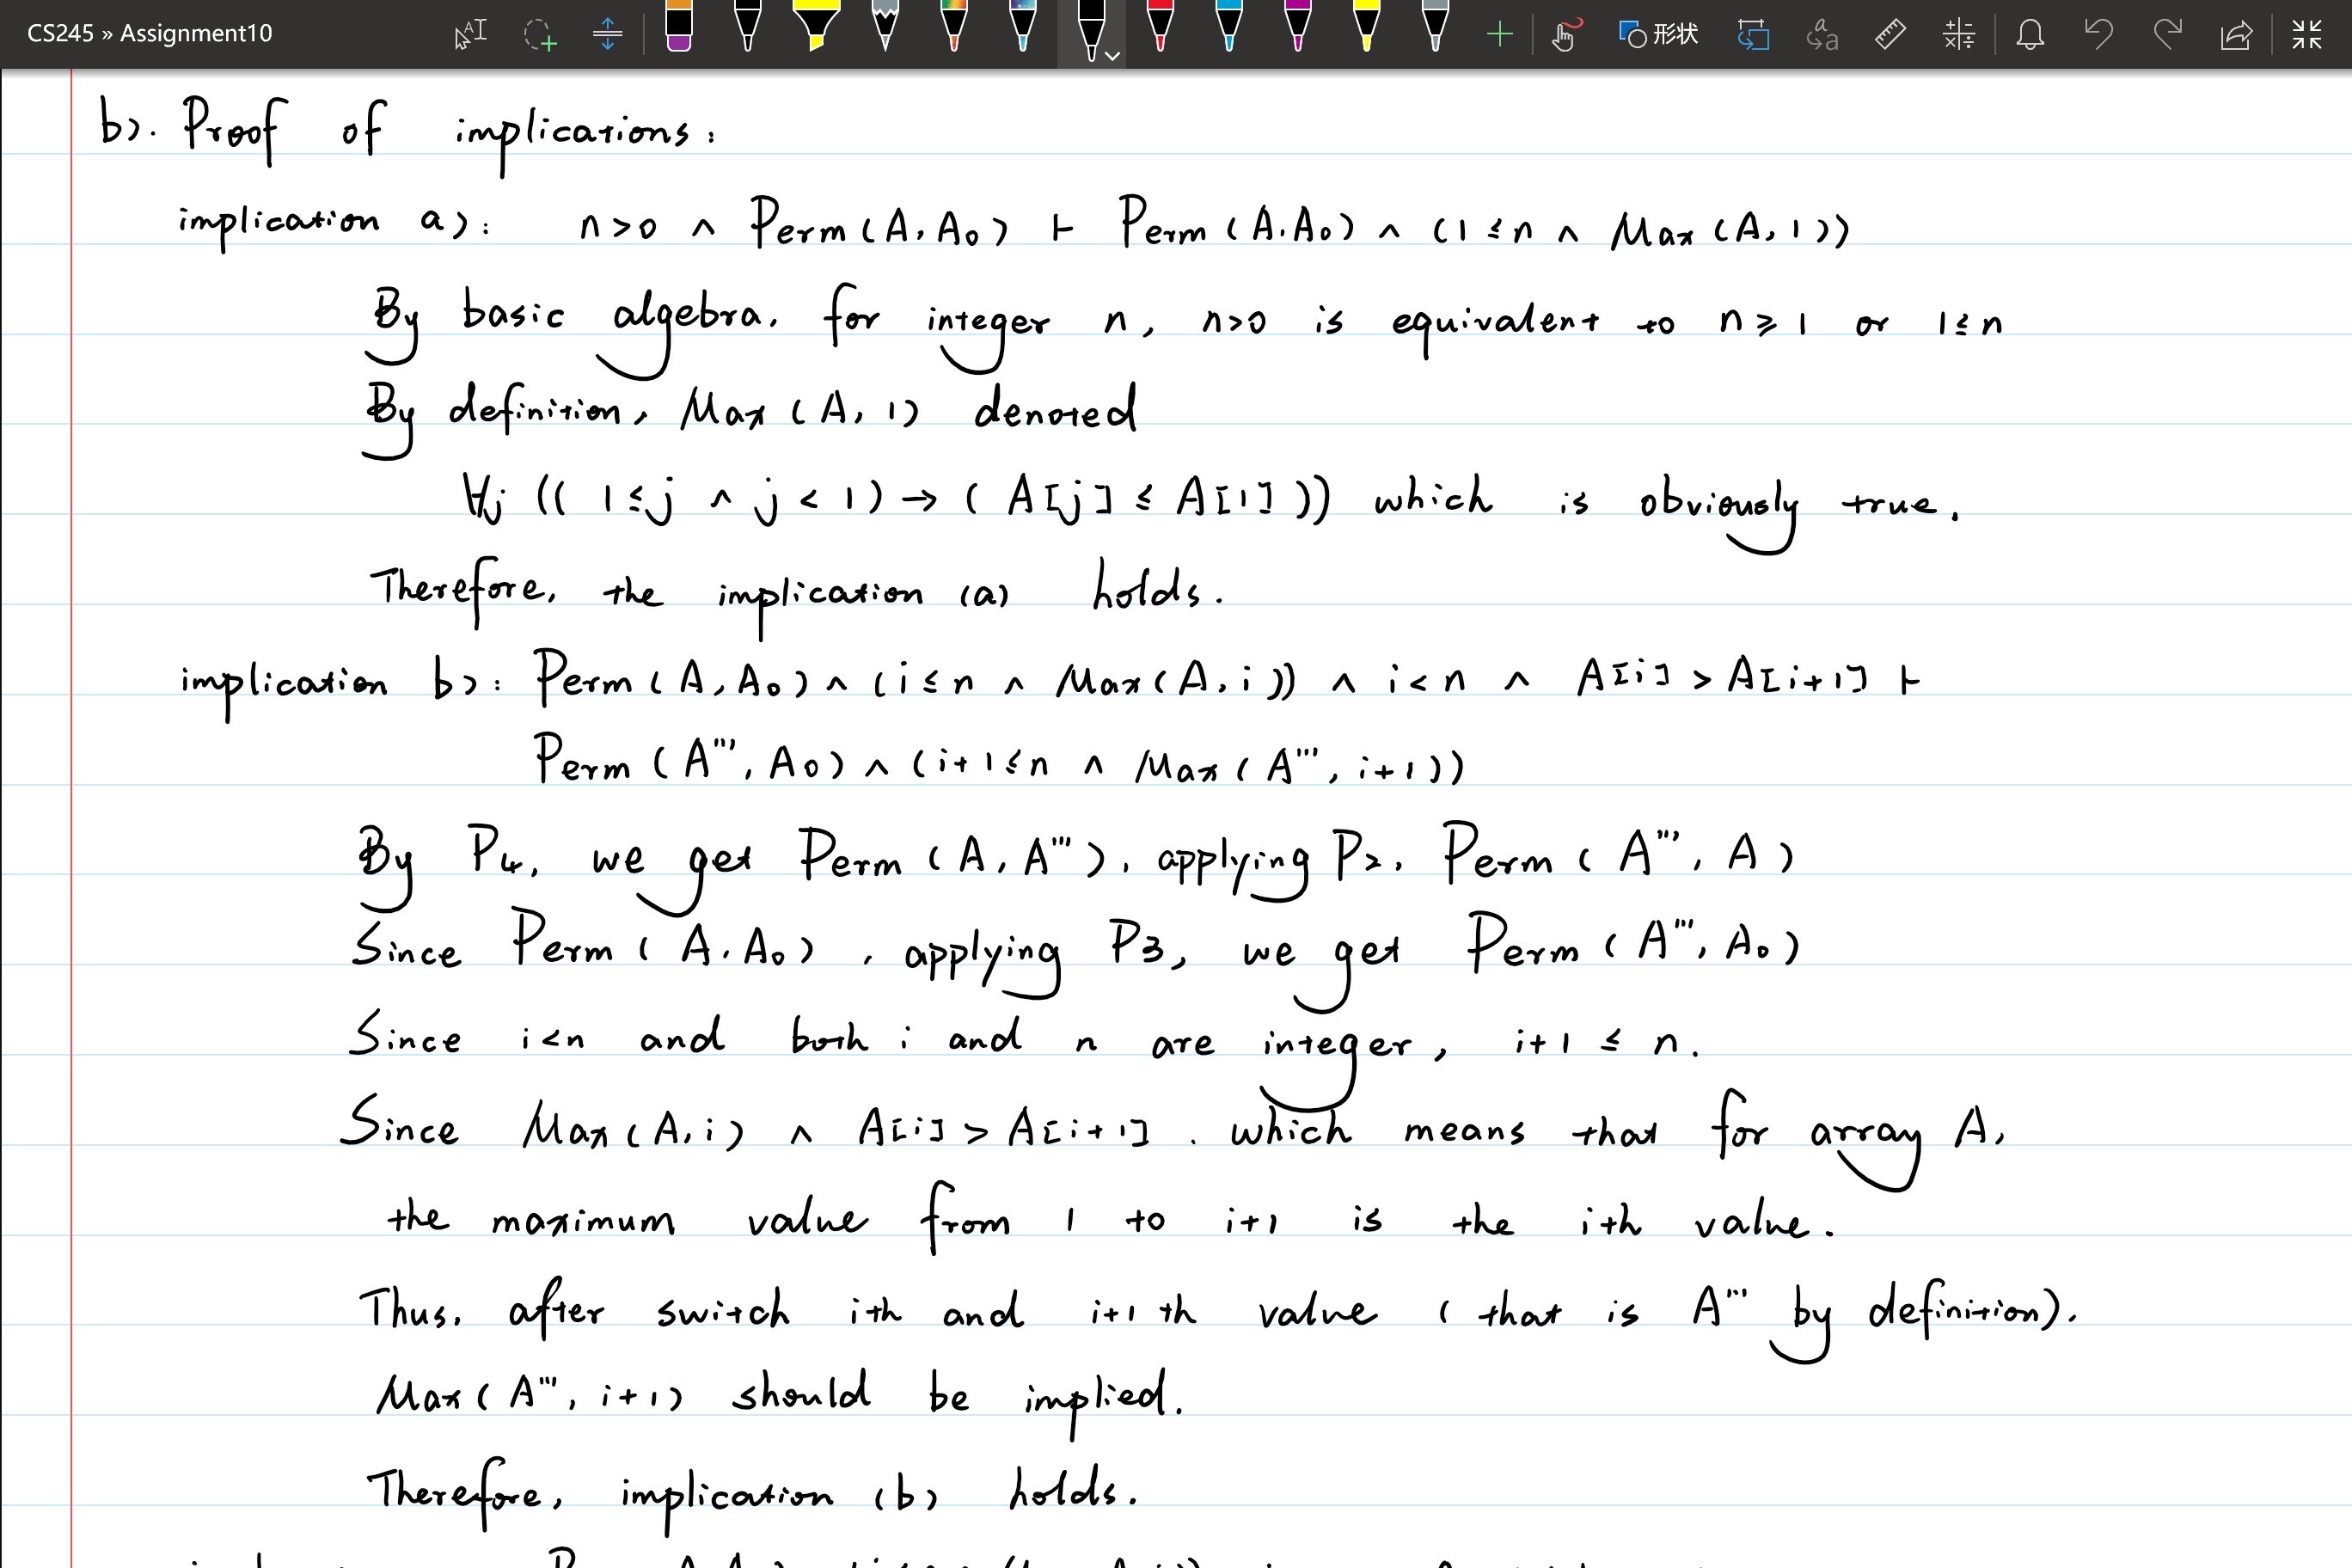 CS245 » Assignment10
形状
b). Proof of implications:
implication a): n>0 ∧ Perm(A, A₀) ⊢ Perm(A, A₀) ∧ (1≤n ∧ Max(A, 1))
By basic algebra, for integer n, n>0 is equivalent to n≥1 or 1≤n
By definition, Max(A, 1) denoted
∀j ((1≤j ∧ j<1) → (A[j] ≤ A[1])) which is obviously true.
Therefore, the implication (a) holds.
implication b): Perm(A, A₀) ∧ (i≤n ∧ Max(A, i)) ∧ i<n ∧ A[i] > A[i+1] ⊢
Perm(A''', A₀) ∧ (i+1≤n ∧ Max(A''', i+1))
By P4, we get Perm(A, A'''), applying P2, Perm(A''', A)
Since Perm(A, A₀), applying P3, we get Perm(A''', A₀)
Since i<n and both i and n are integer, i+1 ≤ n.
Since Max(A, i) ∧ A[i] > A[i+1]. which means that for array A,
the maximum value from 1 to i+1 is the ith value.
Thus, after switch ith and i+1 th value (that is A''' by definition).
Max(A''', i+1) should be implied.
Therefore, implication (b) holds.